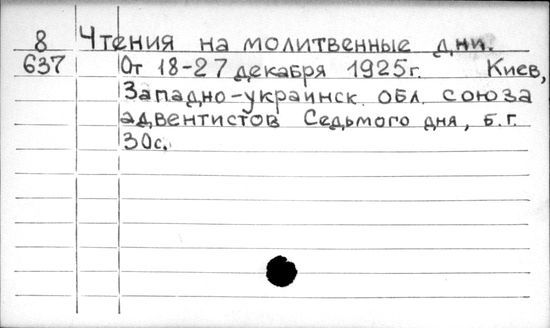 8 Чтения на молитвенные дни.
637 От 18-27 декабря 1925г. Киев,
Западно-украинск. обл. союза
адвентистов Седьмого дня, б.г.
30с.